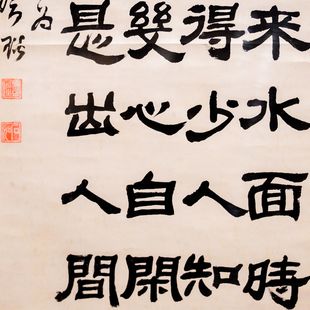 来水面時
得少人知
幾心自閑
是出人間